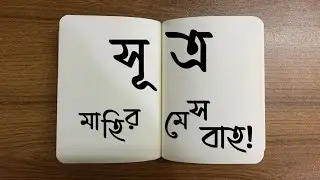 সূত্র
মাহির মেসবাহ!